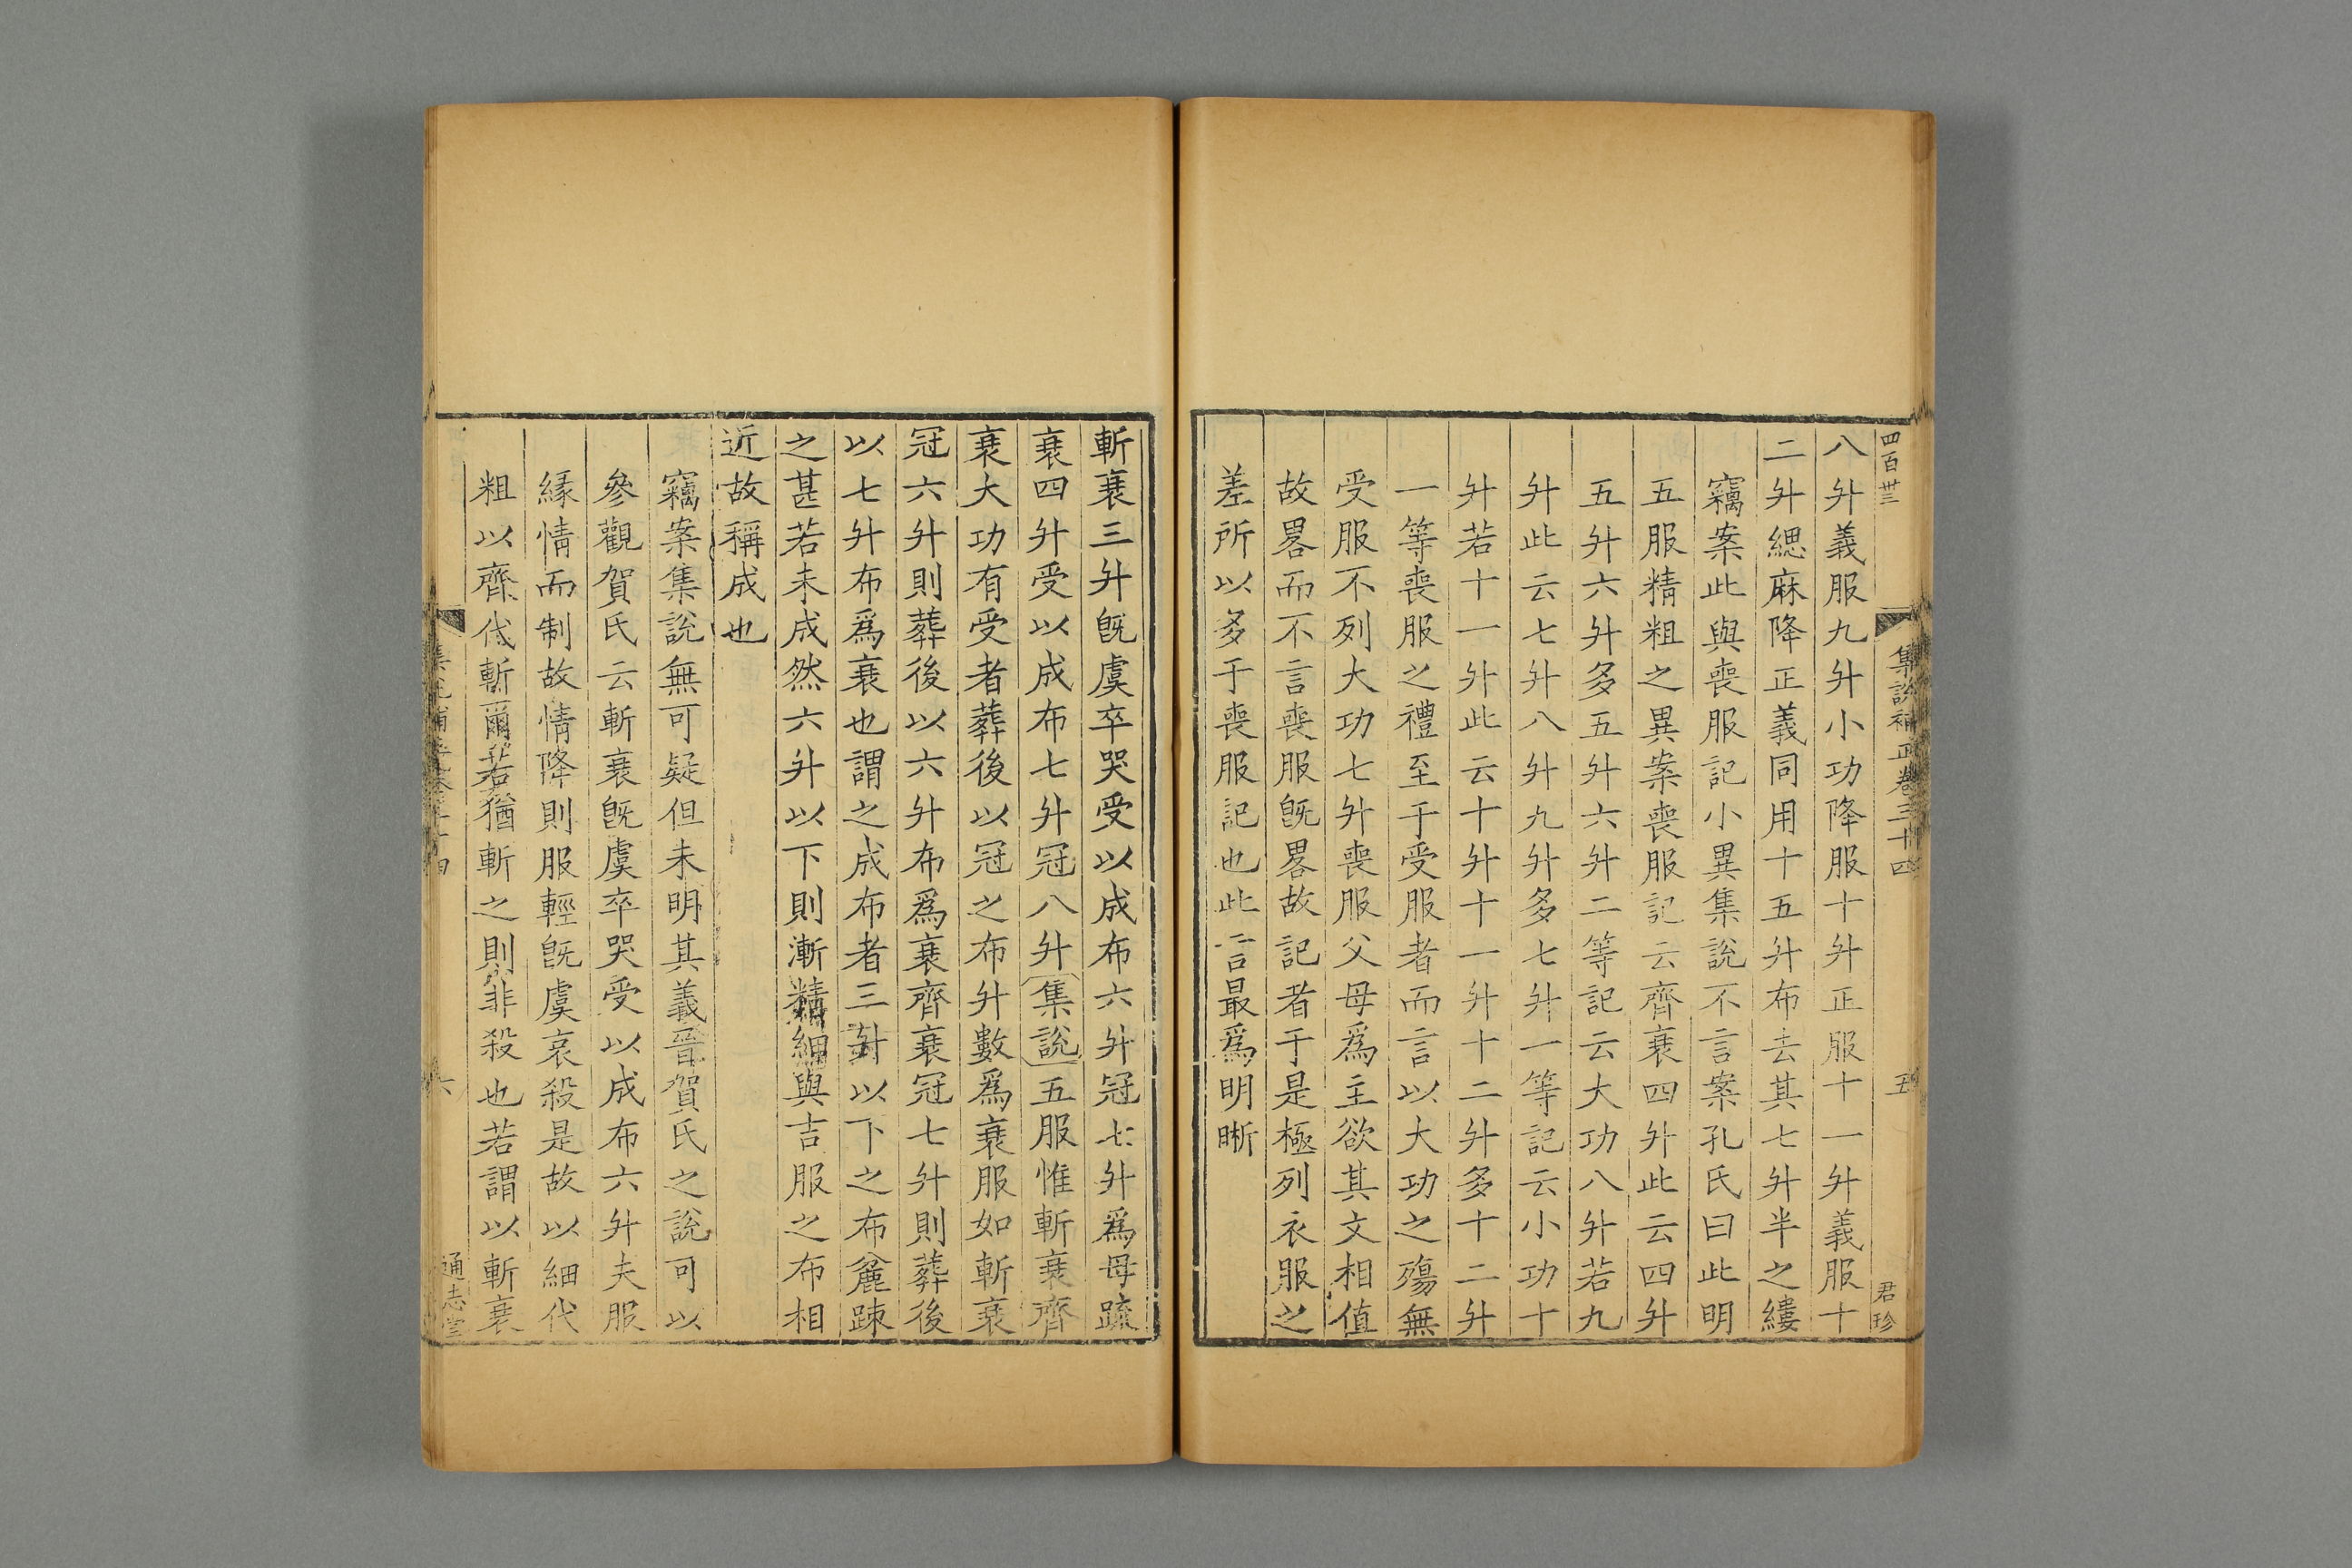 四百卅三
集說補正卷三十四
五
君珍
八升義服九升小功降服十升正服十一升義服十
二升緦麻降正義同用十五升布去其七升半之縷
竊案此與喪服記小異集說不言案孔氏曰此明
五服精粗之異案喪服記云齊衰四升此云四升
五升六升多五升六升二等記云大功八升若九
升此云七升八升九升多七升一等記云小功十
升若十一升此云十升十一升十二升多十二升
一等喪服之禮至于受服者而言以大功之殤無
受服不列大功七升喪服父母爲主欲其文相值
故畧而不言喪服旣畧故記者于是極列衣服之
差所以多于喪服記也此言最爲明晰
斬衰三升旣虞卒哭受以成布六升冠七升爲母疏
衰四升受以成布七升冠八升集說五服惟斬衰齊
衰大功有受者葬後以冠之布升數爲衰服如斬衰
冠六升則葬後以六升布爲衰齊衰冠七升則葬後
以七升布爲衰也謂之成布者三升以下之布麄踈
之甚若未成然六升以下則漸精細與吉服之布相
近故稱成也
竊案集說無可疑但未明其義晉賀氏之說可以
參觀賀氏云斬衰旣虞卒哭受以成布六升夫服
緣情而制故情降則服輕旣虞哀殺是故以細代
粗以齊代斬爾若猶斬之則非殺也若謂以斬衰
六
通志堂